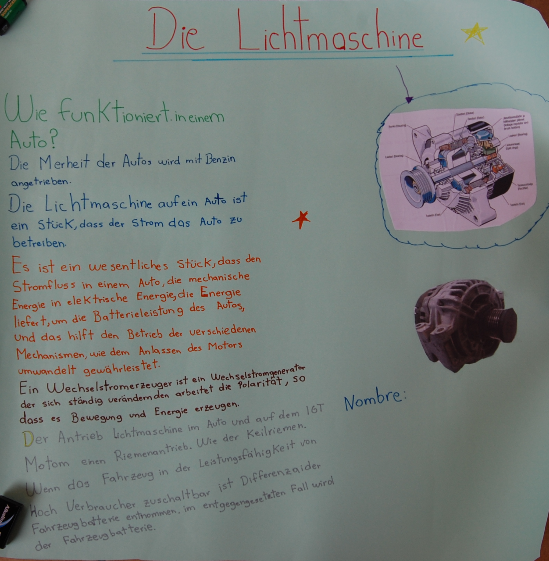 Die Lichtmaschine
Wie funktioniert in einem
Auto?
Die Merheit der Autos wird mit Benzin
angetrieben.
Die Lichtmaschine auf ein Auto ist
ein Stück, dass der Strom das Auto zu
betreiben.
Es ist ein wesentliches Stück, dass den
Stromfluss in einem Auto, die mechanische
Energie in elektrische Energie, die Energie
liefert, um die Batterieleistung des Autos,
und das hilft den Betrieb der verschiedenen
Mechanismen, wie dem Anlassen des Motors
umwandelt gewährleistet.
Ein Wechselstromerzeuger ist ein Wechselstromgenerator
der sich ständig verändernden arbeitet die Polarität, so
dass es Bewegung und Energie erzeugen.
Der Antrieb Lichtmaschine im Auto und auf dem IST
Motom enen Riemenantrieb. Wie der Keilriemen.
Wenn das Fahrzeug in der Leistungsfähigkeit von
Hoch Verbraucher zuschaltbar ist Differenz aider
Fahrzeugbatterie entnommen. im entgegangesetzten Fall wird
der Fahrzeugbatterie.
Nombre: